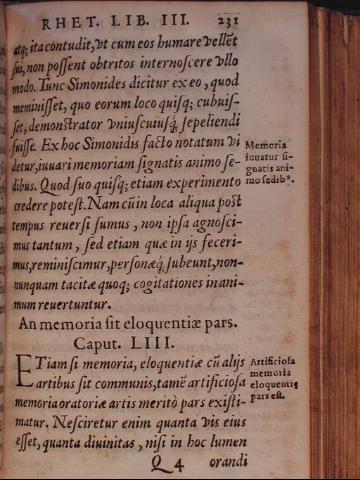 RHET. LIB. III. 231
atq; ita contudit, vt cum eos humare vellẽt
sui, non possent obtritos internoscere vllo
modo. Tunc Simonides dicitur ex eo, quod
meminisset, quo eorum loco quisq; cubuis-
set, demonstrator vniuscuiusq́; sepeliendi
fuisse. Ex hoc Simonidis facto notatum vi
detur, iuuari memoriam signatis animo se-
dibus. Quod suo quisq; etiam experimento
credere potest. Nam cũ in loca aliqua post
tempus reuersi sumus, non ipsa agnosci-
mus tantum, sed etiam quæ in ijs feceri-
mus, reminiscimur, personæq́; subeunt, non-
nunquam tacitæ quoq; cogitationes in ani-
mum reuertuntur.
Memoria
iuuatur si-
gnatis ani-
mo sedibᵒ.
An memoria sit eloquentiæ pars.
Caput. LIII.
ETiam si memoria, eloquentiæ cũ alijs
artibus sit communis, tamẽ artificiosa
memoria oratoriæ artis meritò pars existi-
matur. Nesciretur enim quanta vis eius
esset, quanta diuinitas, nisi in hoc lumen
Artificiosa
memoria
eloquentię
pars est.
Q 4 orandi